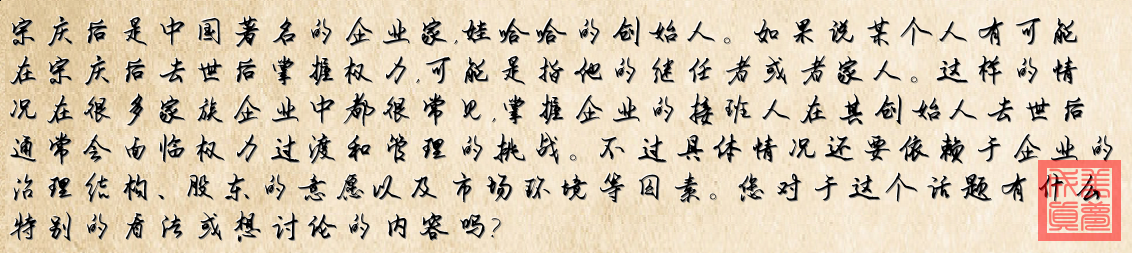 宗庆后是中国著名的企业家,娃哈哈的创始人。如果说某个人有可能
在宗庆后去世后掌握权力,可能是指他的继任者或者家人。这样的情
况在很多家族企业中都很常见,掌握企业的接班人在其创始人去世后
通常会面临权力过渡和管理的挑战。不过具体情况还要依赖于企业的
治理结构、股东的意愿以及市场环境等因素。您对于这个话题有什么
特别的看法或想讨论的内容吗?
美梦成真